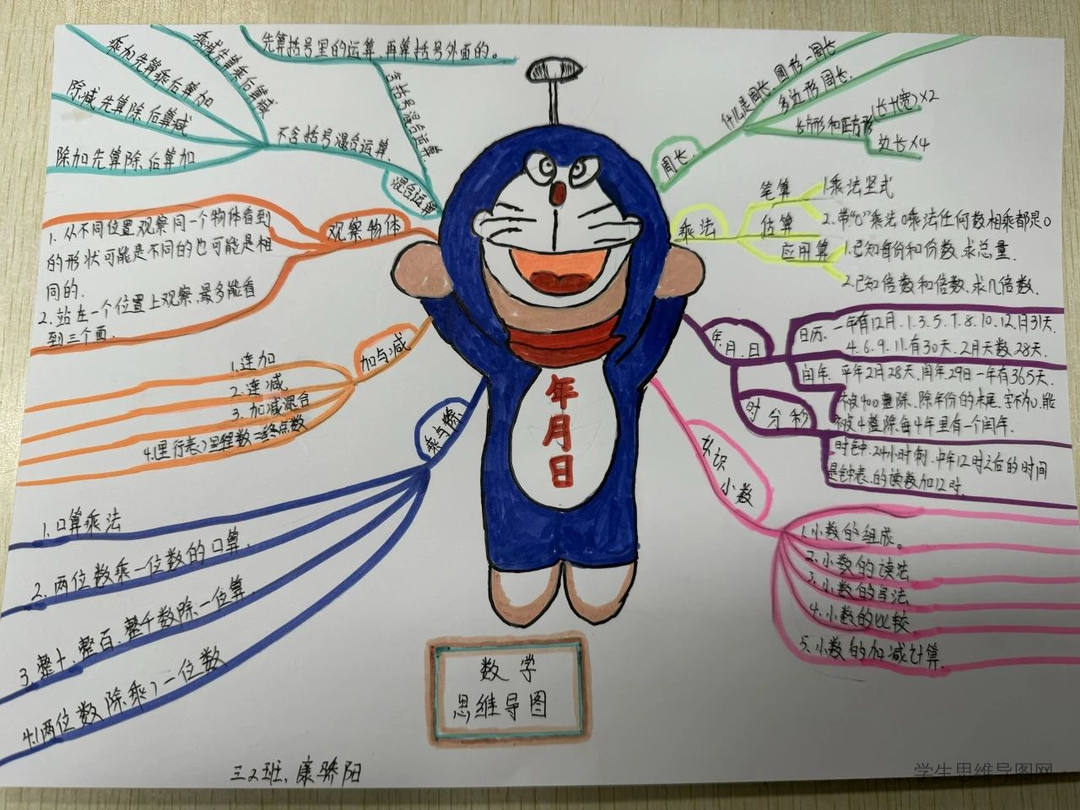 先算括号里的运算,再算括号外面的。
含括号混合运算
乘加先算乘后算加
乘减先算乘后算减
除减先算除后算减
除加先算除后算加
不含括号混合运算.
混合运算
观察物体
1. 从不同位置,观察同一个物体看到
的形状可能是不同的也可能是相
同的.
2. 站在一个位置上观察,最多能看
到三个面.
加与减
1.连加
2.连减
3.加减混合
4.(里行表)里程数=终点数
乘与除
1.口算乘法
2.两位数乘一位数的口算.
3.整十、整百、整千数除一位算.
4.(两位数除乘)一位数
周长.
什么是周长.图形一周长
多边形周长.
长方形和正方形
(长+宽)×2
边长×4
乘法
笔算
1.乘法竖式
估算
2.带“0”乘法0乘法任何数相乘都是0
应用算
1.已知每份和份数,求总量.
2.已知倍数和倍数,求几倍数.
年.月.日
日历.
一年有12月.1.3.5.7.8.10.12.月31天.
4.6.9.11.有30天.2月天数28天.
闰年.平年2月28天,闰年29日一年有365天.
被400整除.除年份的末尾.宝不为0,能
被4整除每4年里有一个闰年.
时分秒
时钟.24小时制.中午12时之后的时间
是钟表.的读数加12时.
认识
小数
1.小数的组成。
2.小数的读法
3.小数的写法
4.小数的比较
5.小数的加减计算.
年
月
日
数学
思维导图
三2班、康骄阳
学生思维导图网